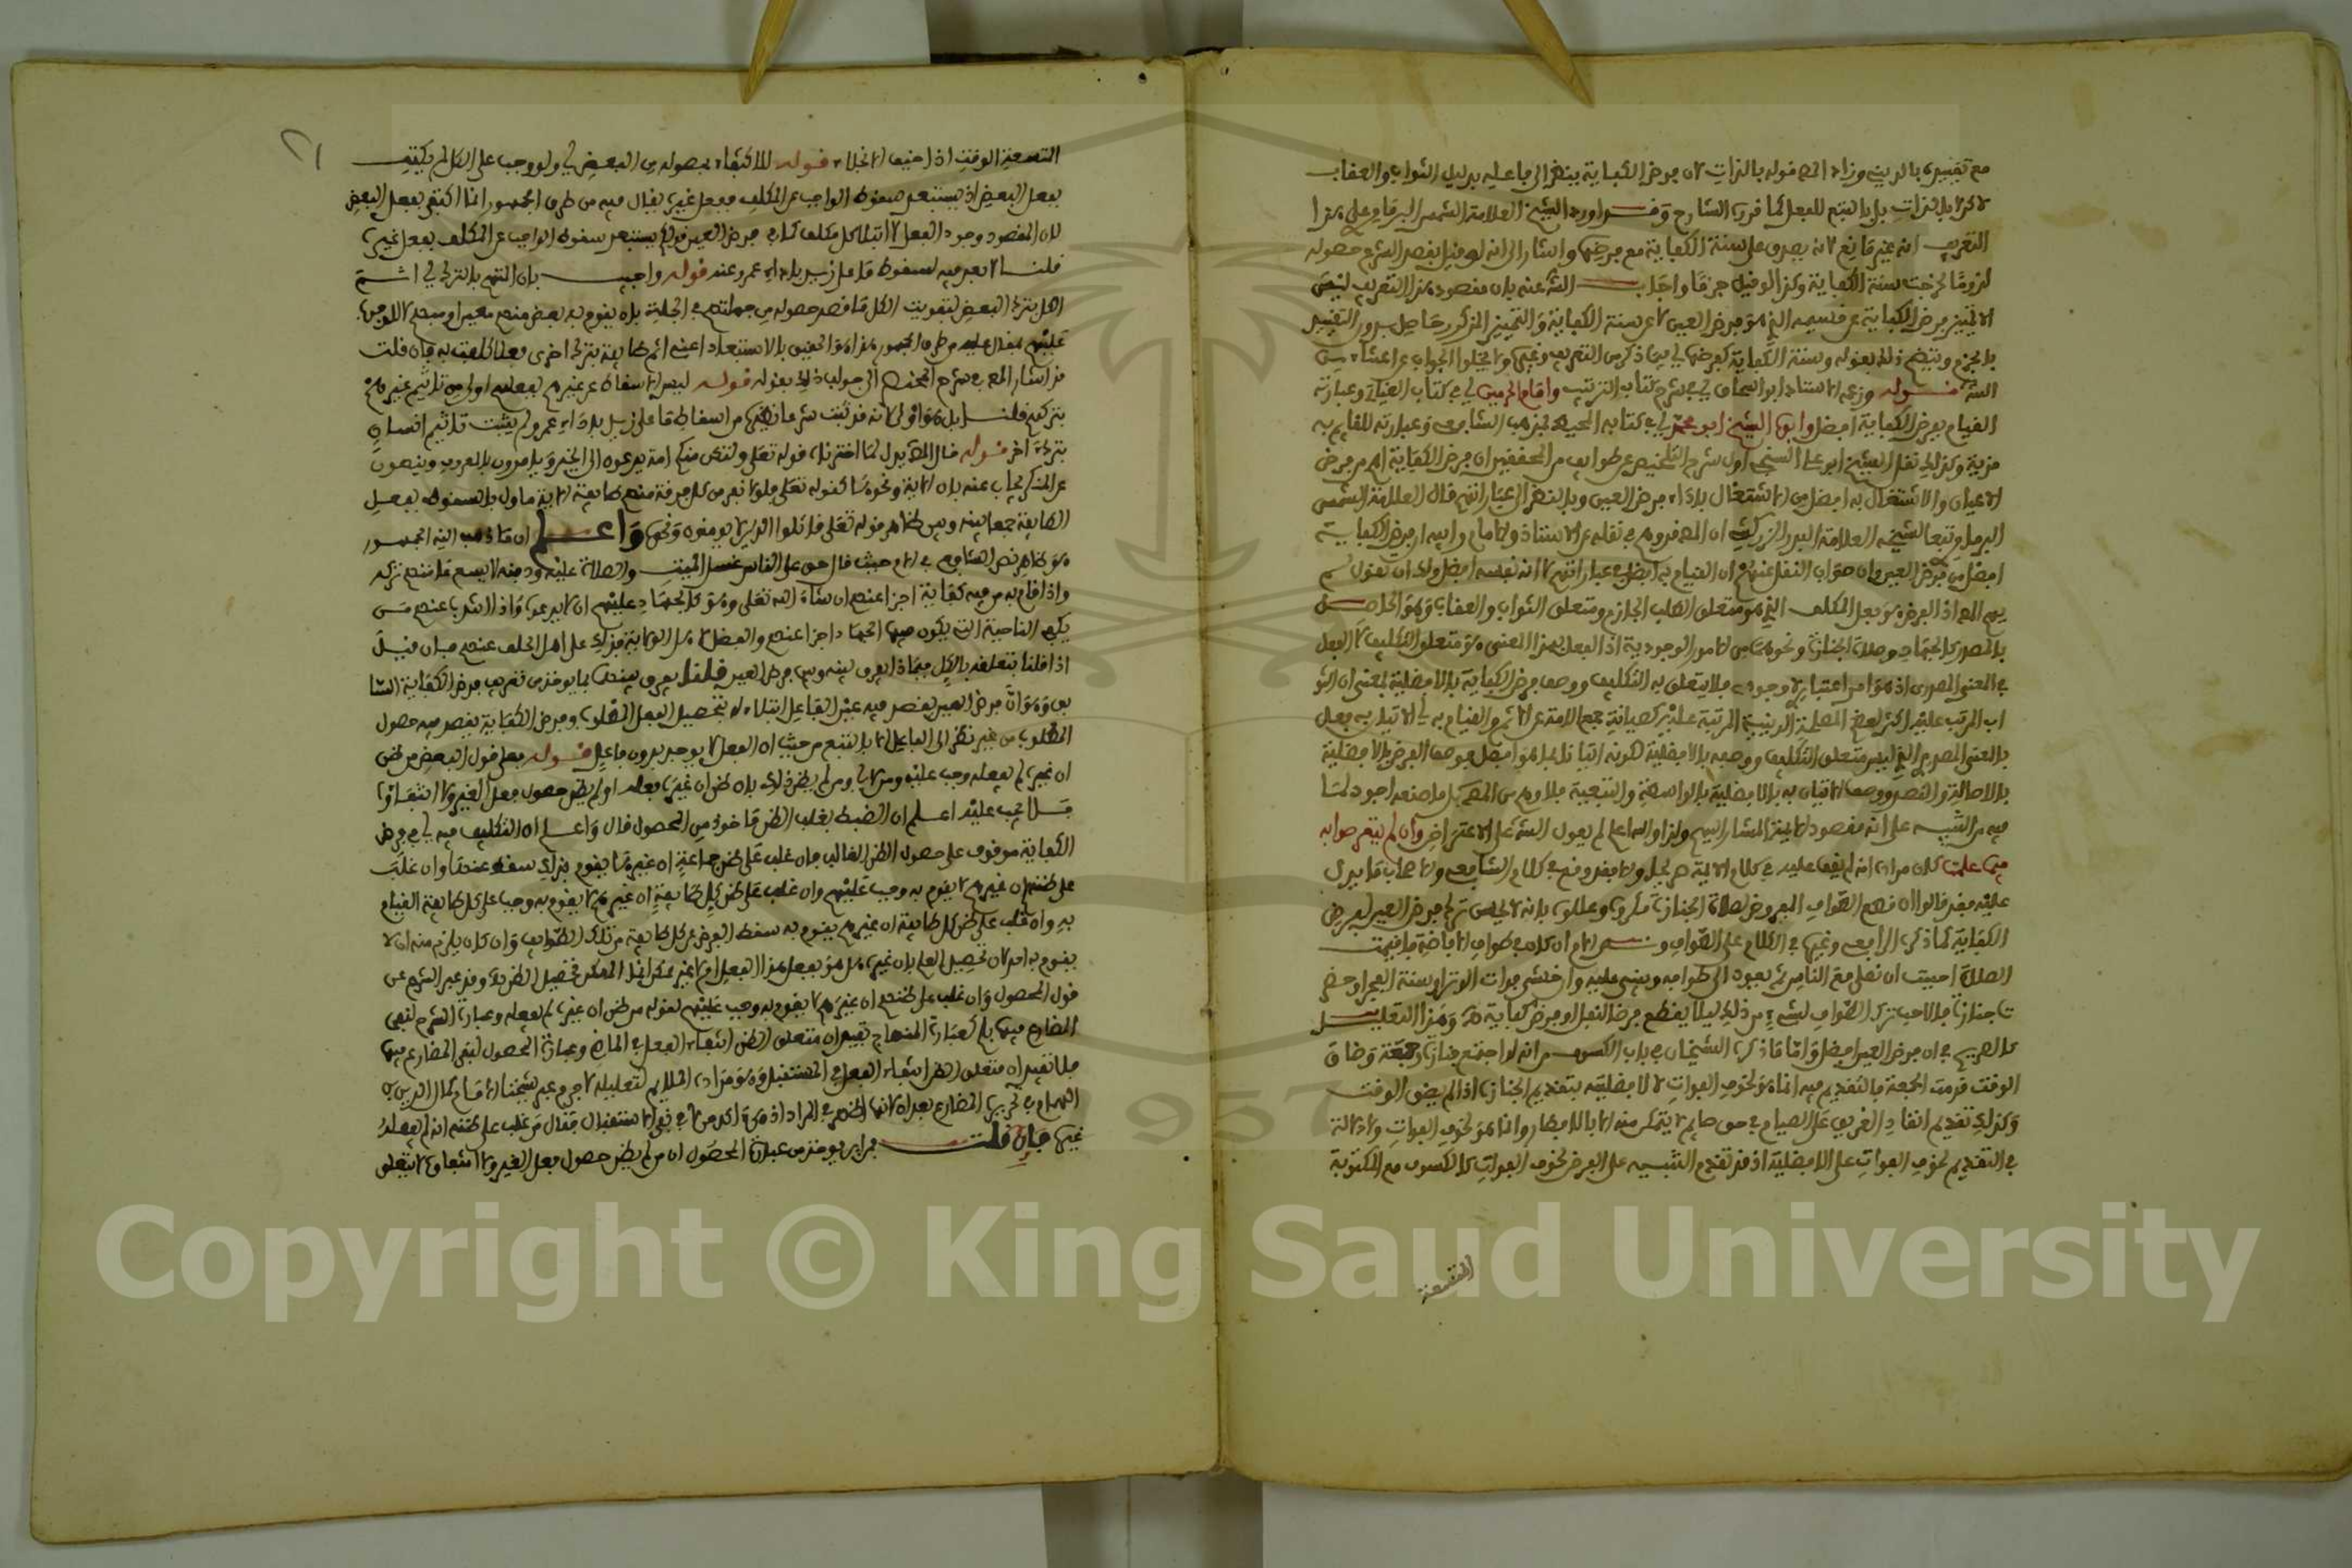 مع تقييده بالديني وزاد المص قوله بالذات لان فرض الكفاية ينظر الى فاعله بدليل الثواب والعقاب
لاكن لا بالذات بل بالتبع للفعل كما قرره الشارح وقد اورد الشيخ العلامة الشمس البرماوي على هذا
التعريف انه غير مانع لانه يصدق على سنة الكفاية مع فرضها واشار الى انه لو قيل يقصد الشرع حصوله
لزوما لخرجت سنة الكفاية وكذا لو قيل جزما واجاب الش عنه بان مقصود هذا التعريف ليس
الا تمييز فرض الكفاية عن قسيمه الذي هو فرض العين لا عن سنة الكفاية والتمييز المذكور حاصل بدون التقييد
بالجزم
الش قوله وزعمه الاستاذ ابو اسحاق في شرح كتاب الترتيب وامام الحرمين في كتاب الغياثي وعبارته
القيام بفرض الكفاية افضل وابوه الشيخ ابو محمد في كتابه المحيط بمذهب الشافعي وعبارته للقايم به
مزية وكذلك نقل الشيخ ابو علي السنجي اول شرح التلخيص عن طوايف من المحققين ان فرض الكفاية اهم من فرض
الاعيان والاشتغال به افضل من الاشتغال باداء فرض العين وبالنظر الى عباراتهم قال العلامة الشمس
البرماوي تبعا لشيخه العلامة البدر الزركشي ان المص قد وهم في نقله عن الاستاذ والامام وابيه ان فرض الكفاية
افضل من فرض العين وان صواب النقل عنهم ان القيام به افضل في عباراتهم لا انه نفسه افضل ولك ان تقول لم
يهم المص اذ الفرض هو فعل المكلف الذي هو متعلق الطلب الجازم ومتعلق الثواب والعقاب وهو الحاصل
بالمصدر كالجهاد وصلاة الجنازة ونحوهما من الامور الوجودية اذ الفعل بهذا المعنى هو متعلق التكليف لا الفعل
بالمعنى المصدري اذ هو امر اعتباري لا وجودي فلا يتعلق به التكليف ووصف فرض الكفاية بالافضلية بمعنى ان الثو
بالمعنى المصدري الذي ليس متعلق التكليف ووصفه بالافضلية لكونه اتيانا بما هو افضل فوصف الفرض بالافضلية
بالاصالة والقصد ووصف الاتيان به بالافضلية بالواسطة والتبعية فلا وهم من المص بل ما صنعه اجود لما
عليه فقد قالوا ان قطع الطواف المفروض لصلاة الجنازة مكروه وعللوه بانه لا يحسن ترك فرض العين لفرض
الكفاية كما ذكره الرافعي وغيره في الكلام على الطواف
الصلاة احببت ان يصلي مع الناس ثم يعود الى طوافه ويبني عليه وان خشي فوات الوتر او سنة الفجر او حضر
ت جنازة فلا احب ترك الطواف لشيء من ذلك ليلا يقطع فرضا لنفل او فرض كفاية هـ وهذا التعليل
كالصريح في ان فرض العين افضل واما ما ذكره الشيخان في باب الكسوف من انه لو اجتمع جنازة وجمعة وضاق
الوقت قدمت الجمعة فالتقديم فيه انما هو لخوف الفوات لا للافضلية بتقديم الجنازة اذا لم يضق الوقت
وكذلك تقديم انقاذ الغريق على الصيام في حق صايم لا يتمكن منه الا بالافطار وانما هو لخوف الفوات ولا دلالة
في التقديم لخوف الفوات على الافضلية اذ قد تقدم السنة على الفرض لخوف الفوات كالكسوف مع المكتوبة
المتسعة
المتسعة الوقت اذا خيف الانجلاء قوله للاكتفاء بحصوله من البعض اي ولو وجب على الكل لم يكتف
بفعل البعض اذ يستبعد سقوط الواجب عن المكلف بفعل غيره يقال فيه من طرف الجمهور انما اكتفي بفعل البعض
لان المقصود وجود الفعل لا ابتلاء كل مكلف كما في فرض العين قولكم يستبعد سقوط الواجب عن المكلف بفعل غيره
قلنا لا بعد فيه لسقوط ما على زيد باداء عمرو عنه قوله واجيب بان اثمهم بالترك اي اثم
الكل بترك البعض لتفويت الكل ما قصد حصوله من جهتهم في الجملة بان يقوم به بعض منهم معين او مبهم لا للوجوب
عليهم يقال عليه من طرف الجمهور هذا هو الحقيق بالاستبعاد اعني اثم طايفة بترك اخرى فعلا كلفت به فان قلت
قد اشار المص في شرح المختصر الى جواب ذلك بقوله ليس الاسقاط عن غيرهم بفعلهم اولى من تاثيم غيرهم
بتركهم قلنا بل هو اولى لانه قد ثبت شرعا نظيره من اسقاط ما على زيد باداء عمرو ولم يثبت تاثيم انسان
بترك اخر قوله قال المص يدل لما اخترناه قوله تعلى ولتكن منكم امة يدعون الى الخير ويامرون بالمعروف وينهون
عن المنكر يجاب عنه بان الاية ونحوها كقوله تعلى فلولا نفر من كل فرقة منهم طايفة الاية ماول بالسقوط بفعل
الطايفة جمعا بينه وبين ظاهر قوله تعلى قاتلوا الذين لا يومنون ونحوه واعلم ان ما ذهب اليه الجمهور
هو ظاهر نص الشافعي في الام حيث قال حق على الناس غسل الميت والصلاة عليه ودفنه لا يسع عامتهم تركه
واذا قام به من فيه كفاية اجزا عنهم ان شاء الله تعلى وهو كالجهاد عليهم ان لا يدعوه واذا انتدب منهم من
يكفي الناحية التي يكون فيها الجهاد اجزا عنهم والفضل لاهل الولاية بذلك على اهل التخلف عنهم فان قيل
اذا قلنا بتعلقه بالكل فبماذا يفرق بينه وبين فرض العين قلنا يفرق بينهما بما يوخذ من تعريف فرض الكفاية السا
بق وهو ان فرض العين يقصد فيه عين الفاعل ابتلاء له بتحصيل الفعل المطلوب وفرض الكفاية يقصد فيه حصول
المطلوب من غير نظر الى الفاعل الا بالتبع من حيث ان الفعل لا يوجد بدون فاعل قوله فعلى قول البعض من ظن
ان غيره لم يفعله وجب عليه ومن لا اي ومن لم يظن ذلك بان ظن ان غيره فعله او لم يظن حصول فعل الغير ولا انتفاؤه
فلا يجب عليه اعلم ان الضبط بغلبة الظن ماخوذ من المحصول قال واعلم ان التكليف فيه اي في فرض
الكفاية موقوف على حصول الظن الغالب فان غلب على ظن جماعة ان غيرها يقوم بذلك سقط عنها وان غلب
على ظنهم ان غيرهم لا يقوم به وجب عليهم وان غلب على ظن كل طايفة ان غيرهم لا يقوم به وجب على كل طايفة القيام
به وان غلب على ظن كل طايفة ان غيرهم يقوم به سقط الفرض عن كل طايفة من تلك الطوايف وان كان يلزم منه ان لا
يقوم به احد لان تحصيل العلم بان غيره هل هو يفعل هذا الفعل ام لا غير ممكن انما الممكن تحصيل الظن هـ وقد عبر الشرح عن
قول المحصول وان غلب على ظنهم ان غيرهم لا يقوم به وجب عليهم بقوله من ظن ان غيره لم يفعله وعبارة الشرح لنفي
المضارع فيها بلم كعبارة المنهاج تفيد ان متعلق الظن انتفاء الفعل في الماضي وعبارة المحصول لنفي المضارع فيها
بلا تفيد ان متعلق الظن انتفاء الفعل في المستقبل وهو مراد الملايم لتعليله لا جرم عبر شيخنا الامام كمال الدين بن
الهمام في تحريره
غيره فان قلت فمن اين يوخذ من عبارة المحصول ان من لم يظن حصول فعل الغير ولا انتفاءه لا يتعلق
Copyright © King Saud University
1957